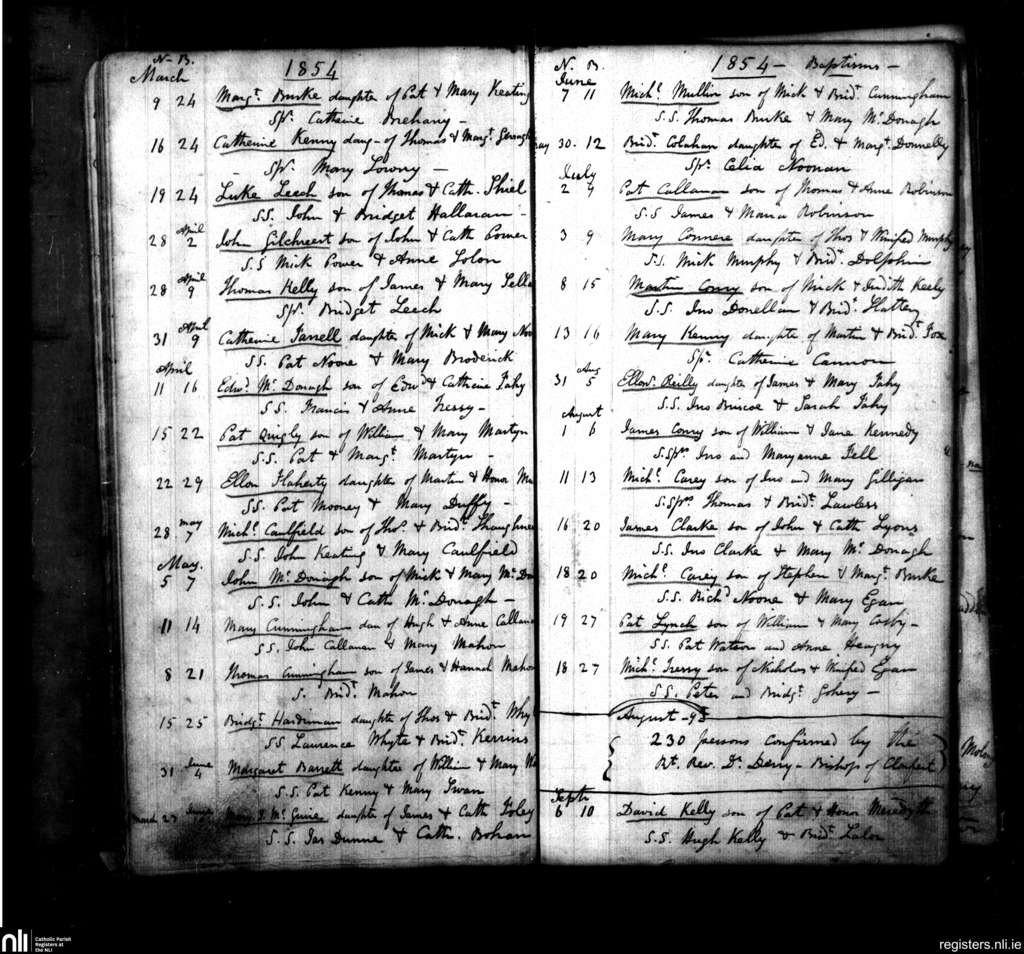 N- B.
March
1854
9 24 Margt. Burke daughter of Pat & Mary Keating
Spr. Catherine Brehany -
16 24 Catherine Kenny daug- of Thomas & Margt.
- Spr. Mary Lowry -
19 24 Luke Leech son of Thomas & Cath. Shiel
SS. John & Bridget Hallaran -
28 April 2 John Gilchreest son of John & Cath Power
S.S Mick Power & Anne Lolon
28 April 9 Thomas Kelly son of James & Mary
Spr. Bridget Leech
31 April 9 Catherine Farrell daughter of Mick & Mary
SS. Pat Noone & Mary Broderick
April
11 16 Edwd. Mc Donagh son of Edwd & Cathrine Fahy
S.S. Francis & Anne Tressy -
15 22 Pat Quigly son of William & Mary Martyn
S.S. Pat & Margt. Martyn -
22 29 Ellen Flaherty daughter of Martin & Honor
SS. Pat Mooney & Mary Duffy -
28 May 7 Michl. Caulfield son of Thos. & Bridt.
S.S. John Keating & Mary Caulfield
May.
5 7 John Mc Donagh son of Mick & Mary Mc
S.S. John & Cath Mc Donagh -
11 14 Mary Cunningham dau of Hugh & Anne
SS. John Callanan & Mary Mahon
8 21 Thomas Cunningham son of James & Hannah Mahon
S. Bridt. Mahon
15 25 Bridgt. Hardiman daughter of Thos & Bridt.
SS Lawrence Whyte & Bridt. Kerrins
31 June 4 Margaret Barrett daughter of William & Mary
S.S. Pat Kenny & Mary Swan
March 23 Mc Guire daughter of James & Cath Foley
S.S. Jas Dunne & Cath. Bohan
N. B.
1854 - Baptisms -
June
7 11 Michl. Mullin son of Mick & Bridt. Cunningham
S.S. Thomas Burke & Mary Mc Donagh
30. 12 Bridt. Colahan daughter of Ed. & Margt. Donnelly
Spr. Celia Noonan
July
2 9 Pat Callanan son of Thomas & Anne Robinson
S.S James & Maria Robinson
3 9 Mary Connere daughter of Thos & Winifred Murphy
S.S. Mick Murphy & Bridt. Dolphin
8 15 Martin Corry son of Mick & Judith Keely
S.S. Jno Donellan & Bridt. Flattery
13 16 Mary Kenny daughter of Martin & Bridt. Fox
Spr. Catherine Cannon
31 Aug 5 Ellenr. Reilly daughter of James & Mary Fahy
S.S. Jno Briscoe & Sarah Fahy
August
1 6 James Corry son of William & Jane Kennedy
S.Sprs Jno and Maryanne Fell
11 13 Michl. Carey son of Jno and Mary Gilligan
S.Sprs Thomas & Bridt. Lawless
16 20 James Clarke son of John & Cath Lyons
S.S. Jno Clarke & Mary Mc Donagh
18 20 Michl. Carey son of Stephen & Margt. Burke
S.S. Richd Noone & Mary Egan
19 27 Pat Lynch son of William & Mary Cosby -
S.S. Pat Watson and Anne Heagny
18 27 Michl. Tressy son of Nicholas & Winifred Egan
S.S. Peter and Bridgt. Gohery -
August
230 persons confirmed by the
Rt. Rev. Dr. Derry - Bishop of Clonfert
Septr
6 10 David Kelly son of Pat & Honor Meredyth
S.S. Hugh Kelly & Bridt. Lalor
nli
Catholic Parish
Registers at
the NLI
registers.nli.ie